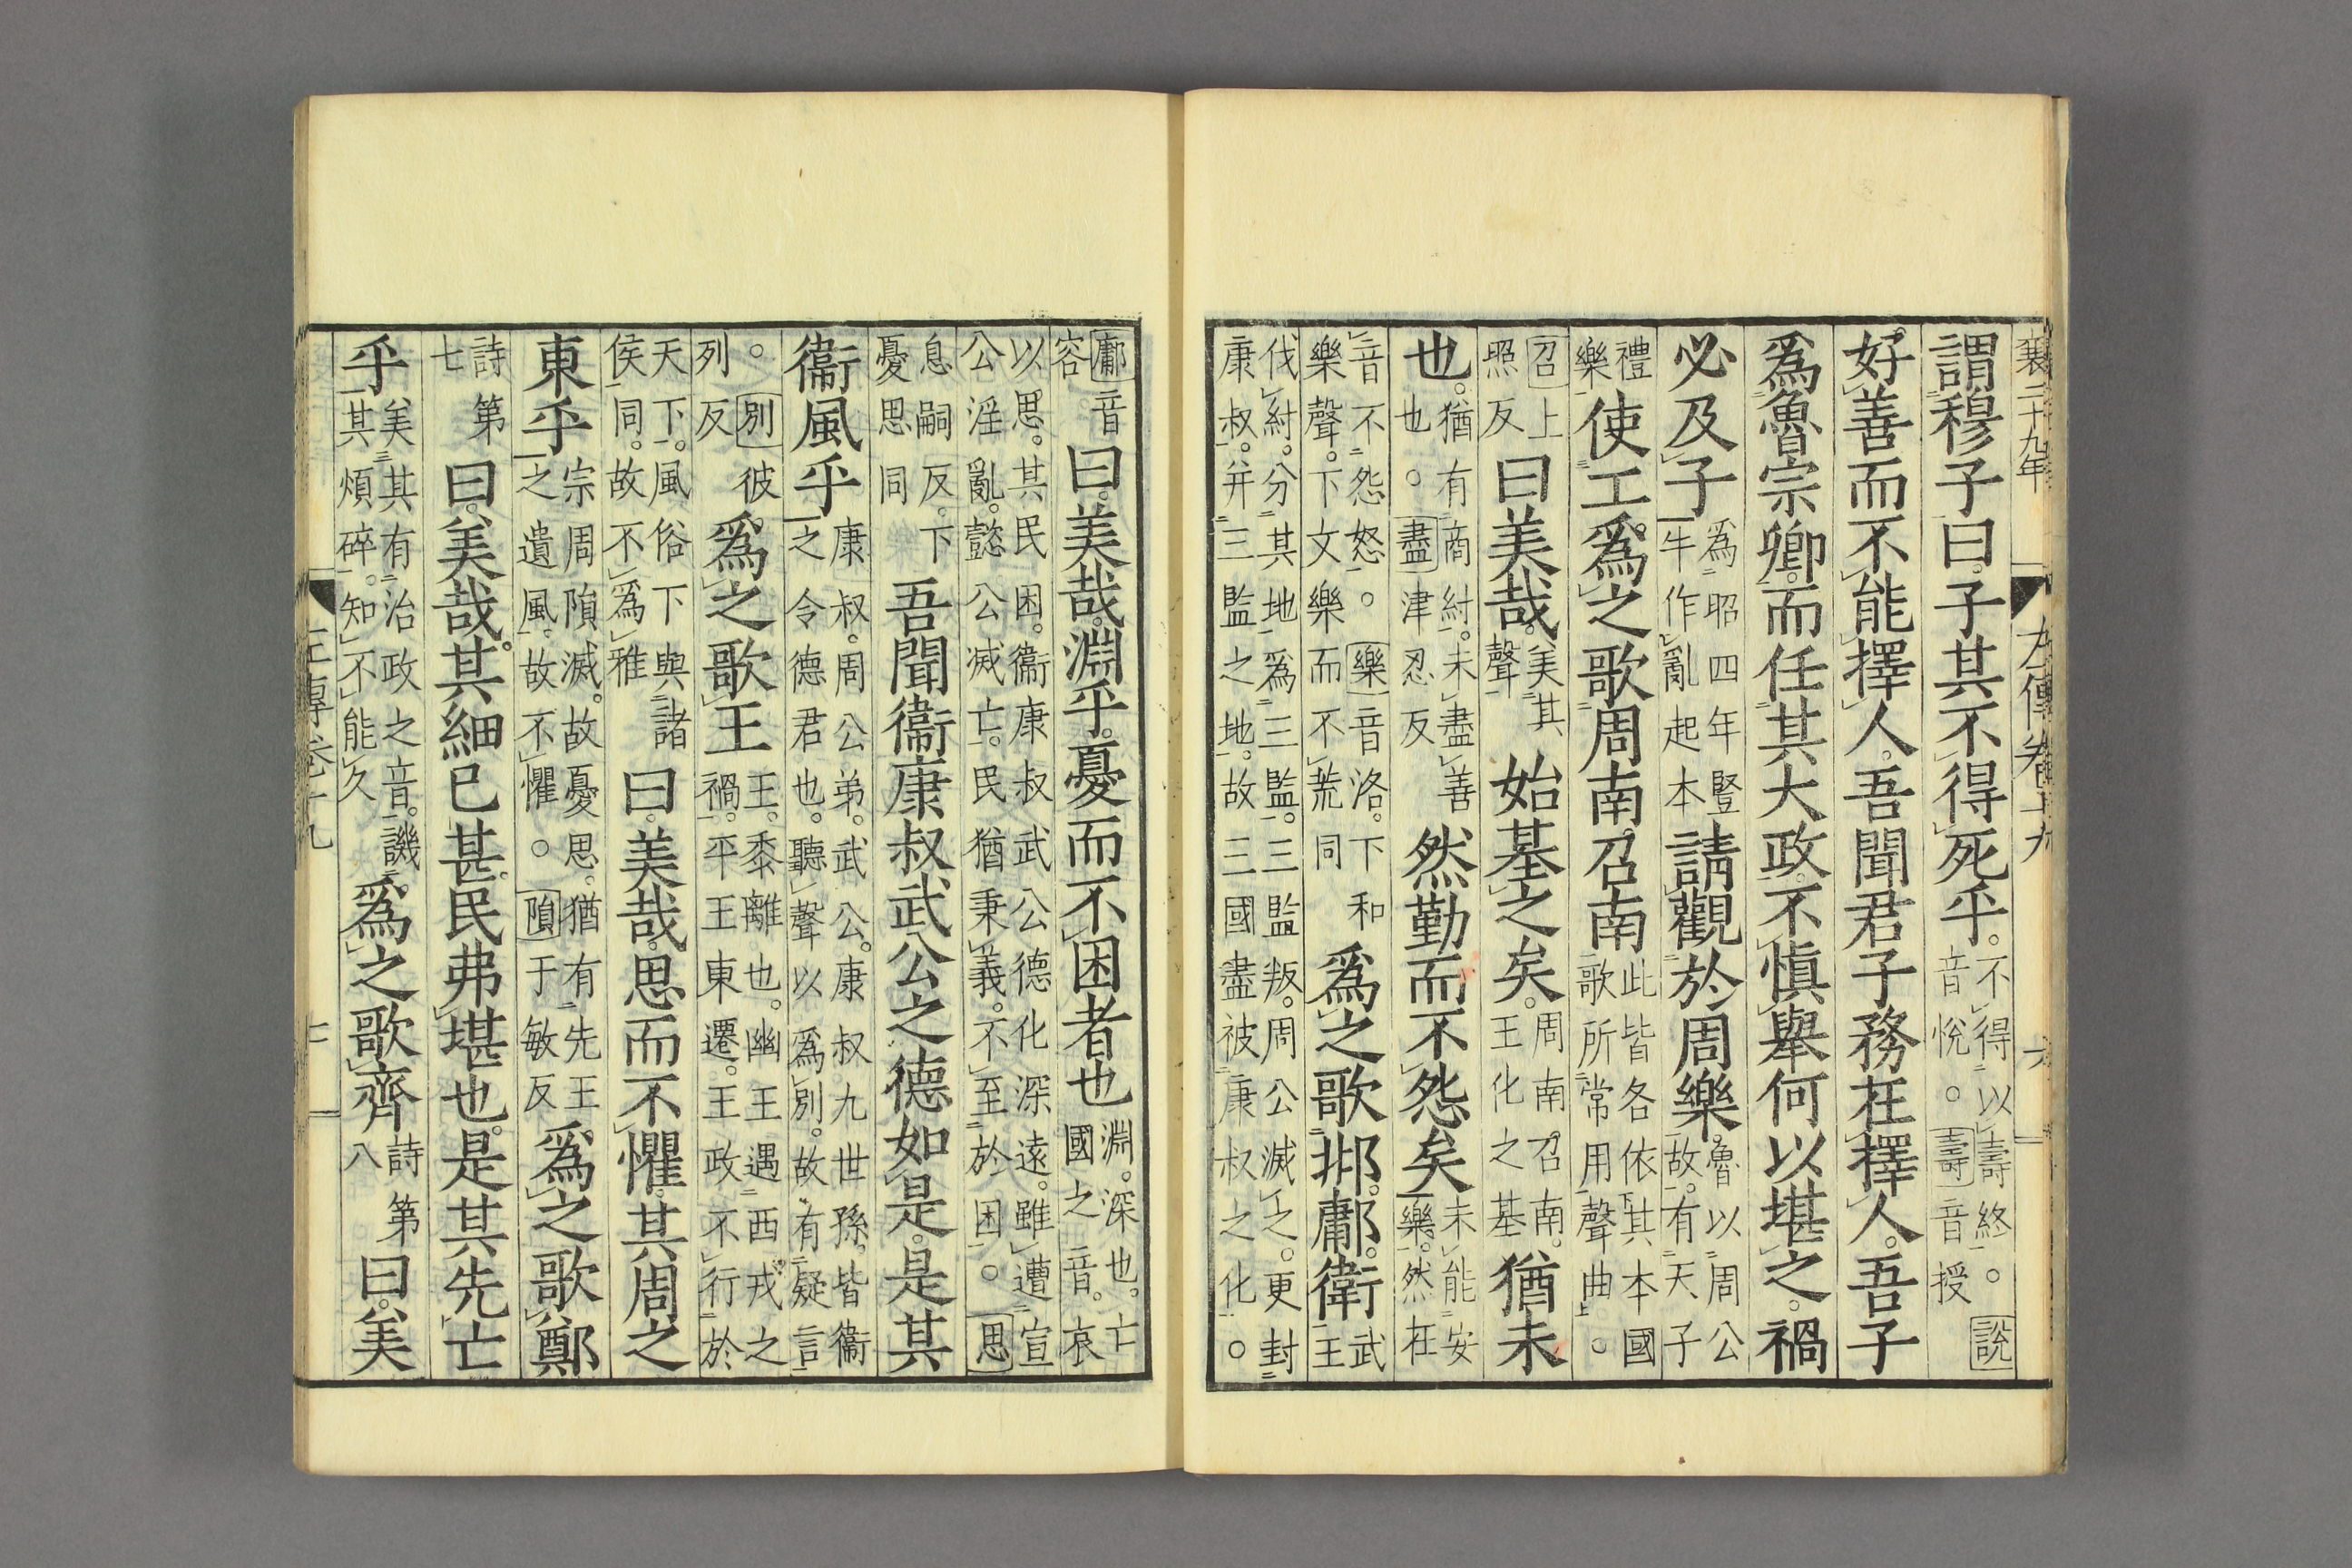 襄二十九年 左傳卷十九 六
謂穆子曰。子其不得死乎。不得以壽終。○說音悅。○壽音授
好善而不能擇人。吾聞君子務在擇人。吾子
爲魯宗卿。而任其大政。不愼舉何以堪之。禍
必及子爲昭四年豎牛作亂起本請觀於周樂。魯以周公故。有天子
禮樂使工爲之歌周南召南此皆各依其本國歌所常用聲曲。○
召上照反曰美哉。美其聲始基之矣。周南。召南。王化之基猶未
也。猶有商紂。未盡善也。○盡津忍反然勤而不怨矣未能安樂。然在
音不怨怒。○樂音洛。下和樂聲。下文樂而不荒同爲之歌邶。鄘。衛武王
伐紂。分其地爲三監。三監叛。周公滅之。更封康叔。并三監之地。故三國盡被康叔之化。○
鄘音容曰。美哉。淵乎。憂而不困者也淵。深也。亡國之音。哀
以思。其民困。衞康叔武公德化深遠。雖遭宣公淫亂。懿公滅亡。民猶秉義。不至於困。○思
息嗣反。下憂思同吾聞衞康叔武公之德如是。是其
衞風乎康叔。周公弟。武公。康叔九世孫。皆衞之令德君也。聽聲以爲別。故有疑言
○別彼列反爲之歌王王。黍離也。幽王遇西戎之禍。平王東遷。王政不行於
天下。風俗下與諸侯同。故不爲雅曰。美哉。思而不懼。其周之
東乎宗周隕滅。故憂思。猶有先王之遺風。故不懼。○隕于敏反爲之歌鄭
詩第七曰。美哉。其細已甚。民弗堪也。是其先亡
乎美其有治政之音。譏其煩碎。知不能久爲之歌齊詩第八曰。美
左傳卷十九 七